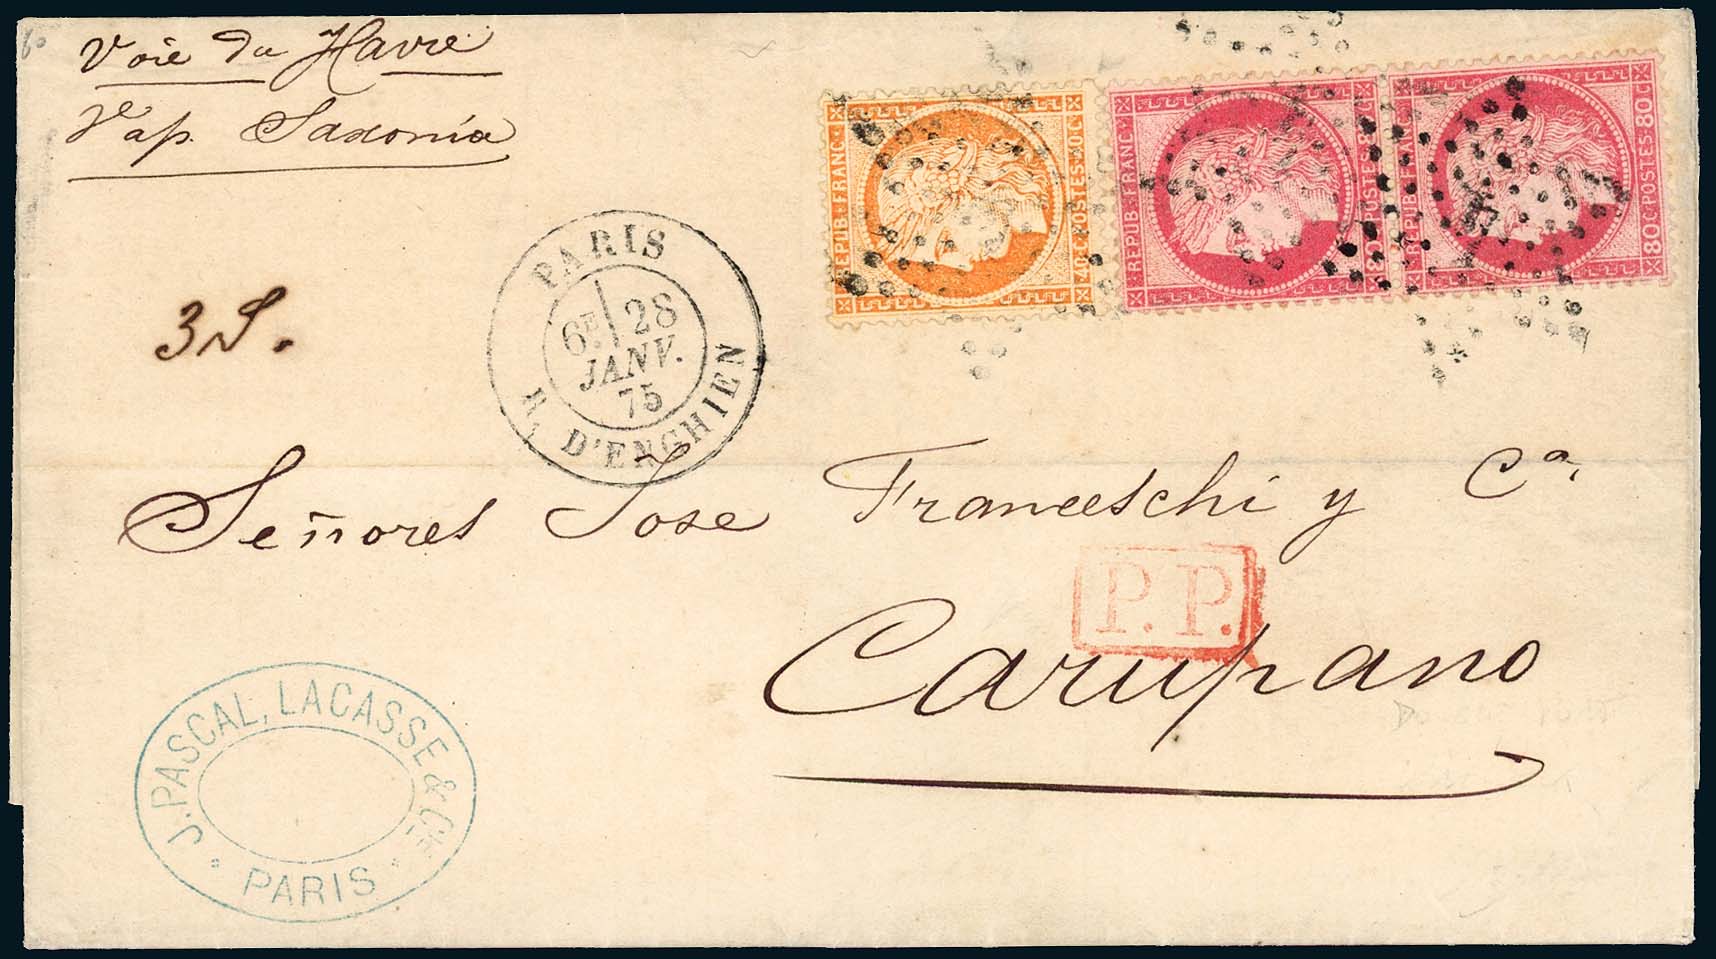 Voie du Havre
Vap. Saxonia
REPUB. FRANC. 40 C. POSTES. 40 C.
REPUB. FRANC. 80 C. POSTES
REPUB. FRANC. 80 C. POSTES. 80 C.
PARIS
6E 28
JANV.
75
R. D'ENGHIEN
Señores Jose Franceschi y Ca.
P.P.
Carupano
J. PASCAL, LACASSE & CIE
PARIS